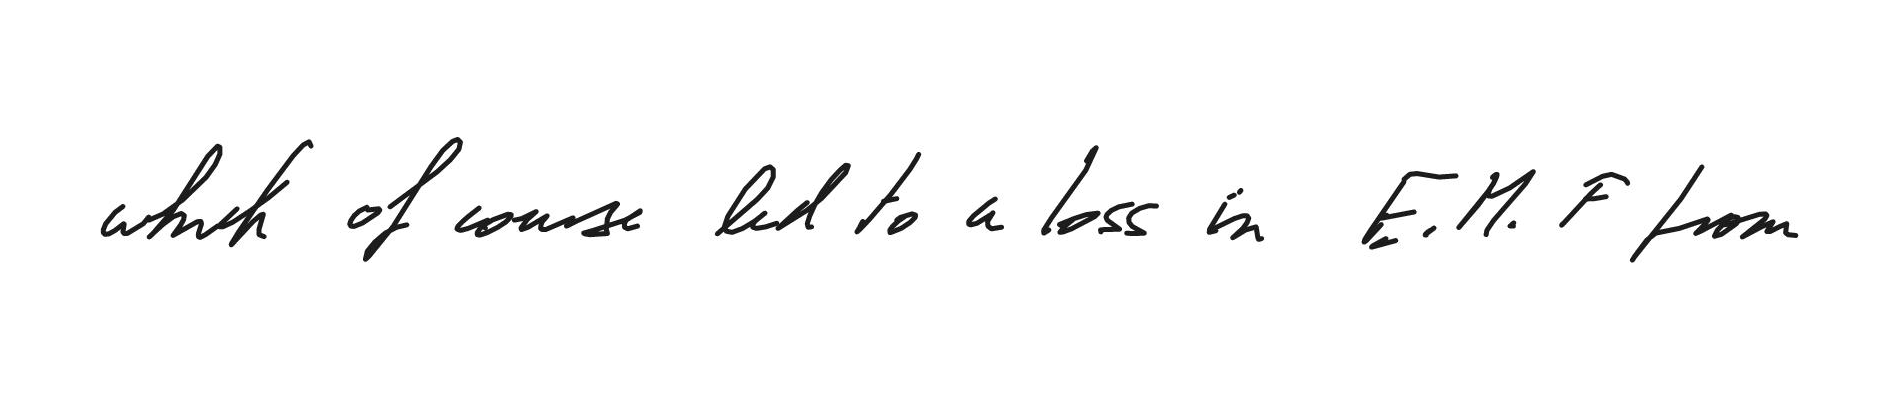 which of course led to a loss in E.M.F from